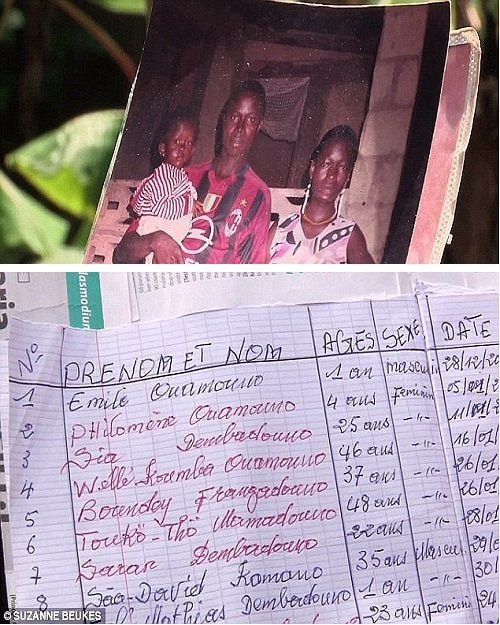 lasmodium
N° PRENOM ET NOM AGES SEXE DATE
1 Emile Ouamouno 1 an masculin 28/12/20
2 Philomène Ouamouno 4 ans Feminin 05/01/
3 Sia Dembadouno 25 ans -"- 11/01/
4 Wellé Koumba Ouamouno 46 ans -"- 16/01/
5 Boundoy Frangadouno 37 ans -"- 26/01
6 Touko-Thö Mamadouno 48 ans -"- 26/01
7 Saran Dembadouno 22 ans -"- 28/01
8 Saa-David Komano 35 ans Masculin 29/0
Mathias Dembadouno 1 an -"- 30/
23 ans Feminin 24
© SUZANNE BEUKES